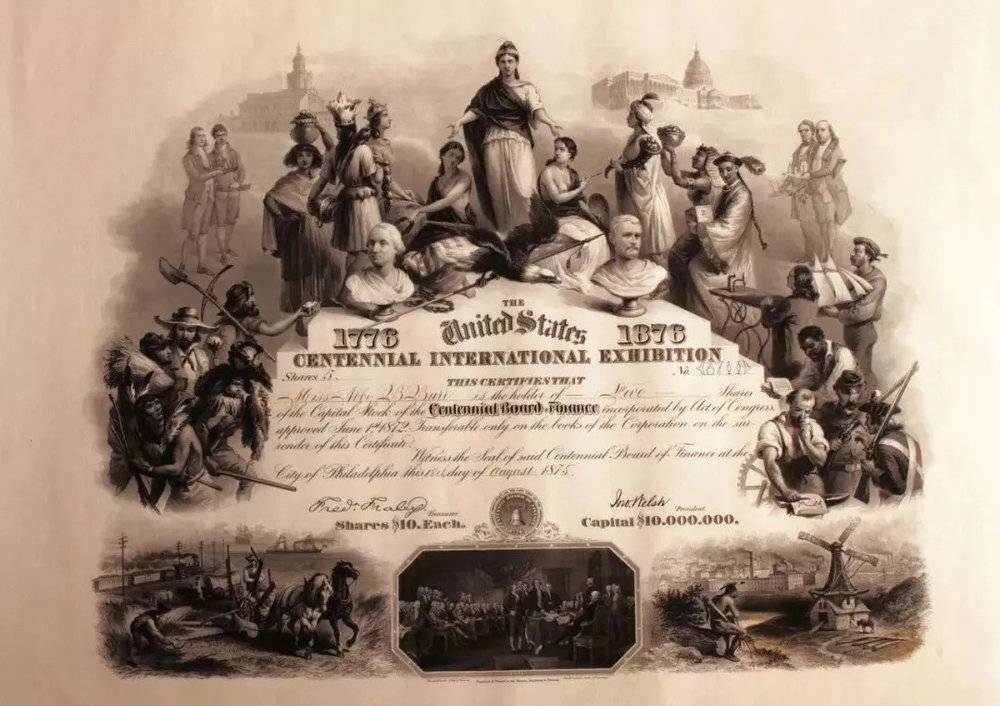 THE
United States
1776 1876
CENTENNIAL INTERNATIONAL EXHIBITION
No.
Shares 5. THIS CERTIFIES THAT
Miss is the holder of Five Shares
of the Capital Stock of the Centennial Board of Finance incorporated by Act of Congress
approved June 1st 1872. Transferable only on the books of the Corporation on the sur-
render of this Certificate.
Witness the Seal of said Centennial Board of Finance at the
City of Philadelphia this day of August 1875.
Fredk. Fraley Treasurer Jno. Welsh President
Shares $10. Each. Capital $10.000.000.